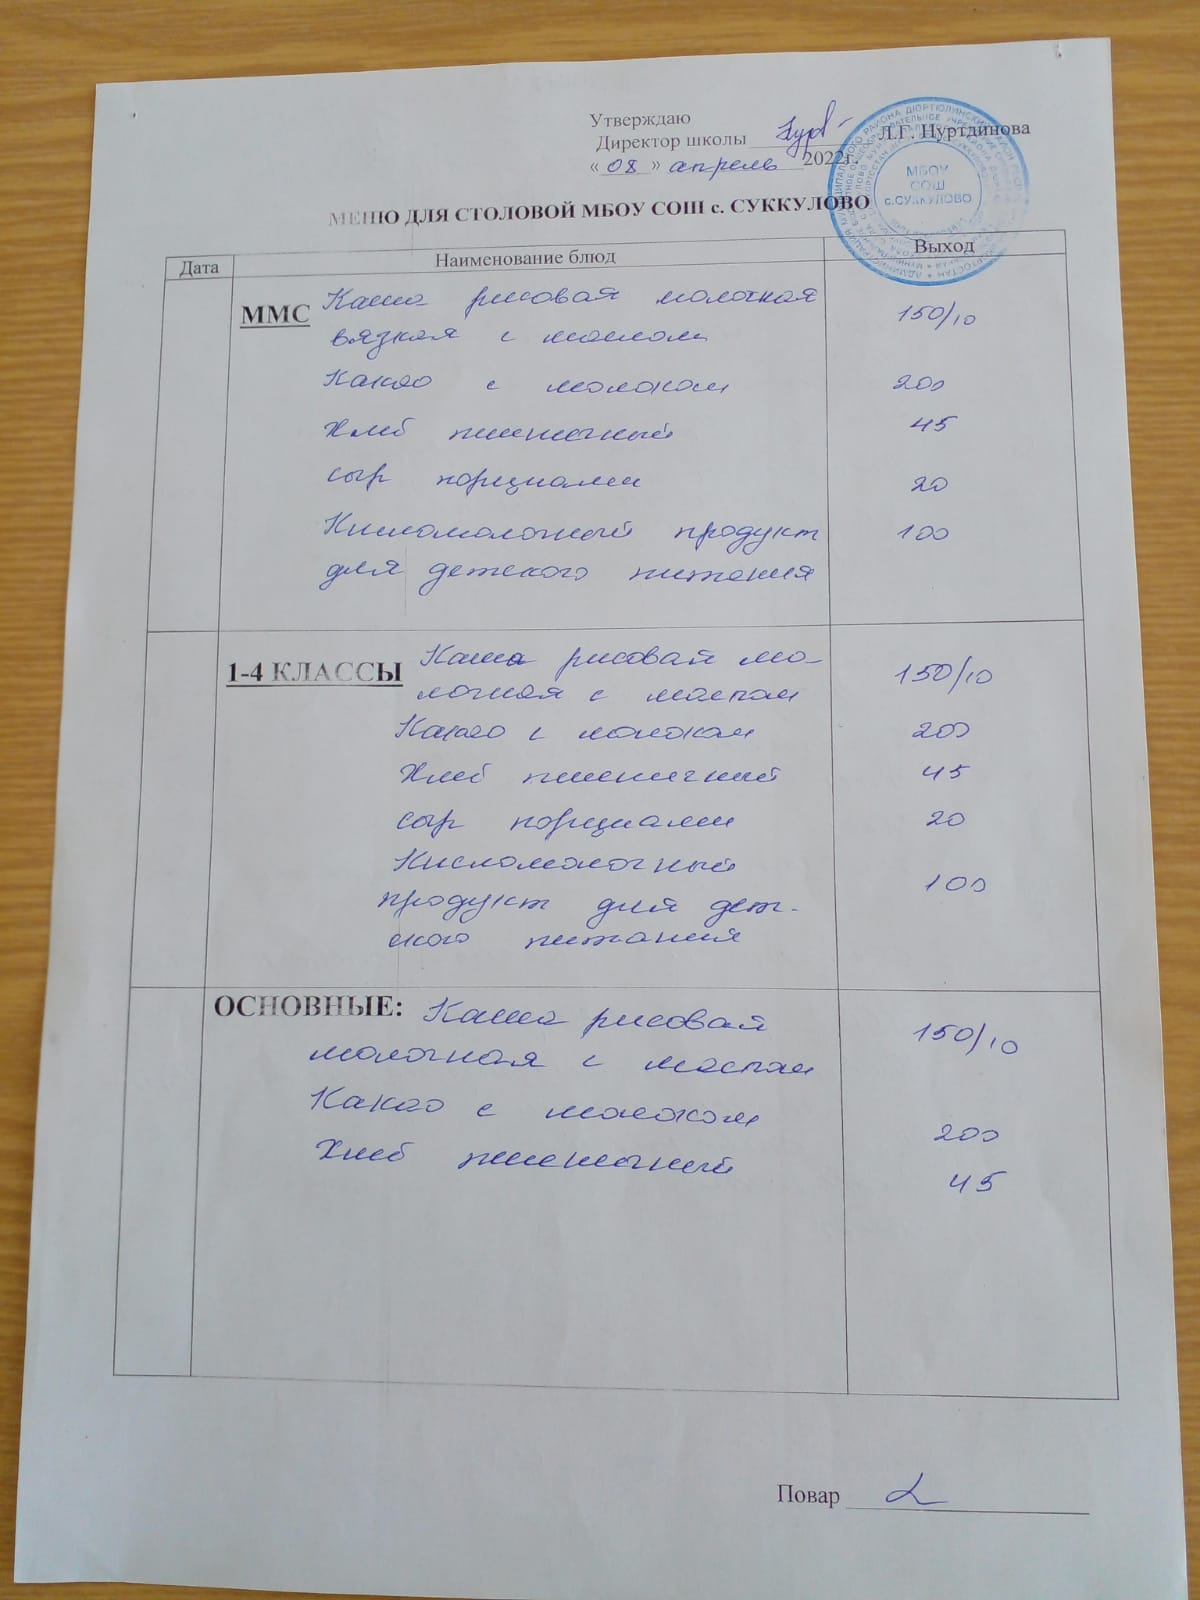 Утверждаю
Директор школы Л.Г. Нуртдинова
« 08 » апрель 2022г.
МБОУ
СОШ
с.СУККУЛОВО
МЕНЮ ДЛЯ СТОЛОВОЙ МБОУ СОШ с. СУККУЛОВО
Дата Наименование блюд Выход
ММС Каша рисовая молочная 150/10
вязкая с маслом
Какао с молоком 200
Хлеб пшеничный 45
сыр порциями 20
Кисломолочный продукт 100
для детского питания
1-4 КЛАССЫ Каша рисовая мо- 150/10
лочная с маслом
Какао с молоком 200
Хлеб пшеничный 45
сыр порциями 20
Кисломолочный
продукт для дет- 100
ского питания
ОСНОВНЫЕ: Каша рисовая 150/10
молочная с маслом
Какао с молоком 200
Хлеб пшеничный 45
Повар